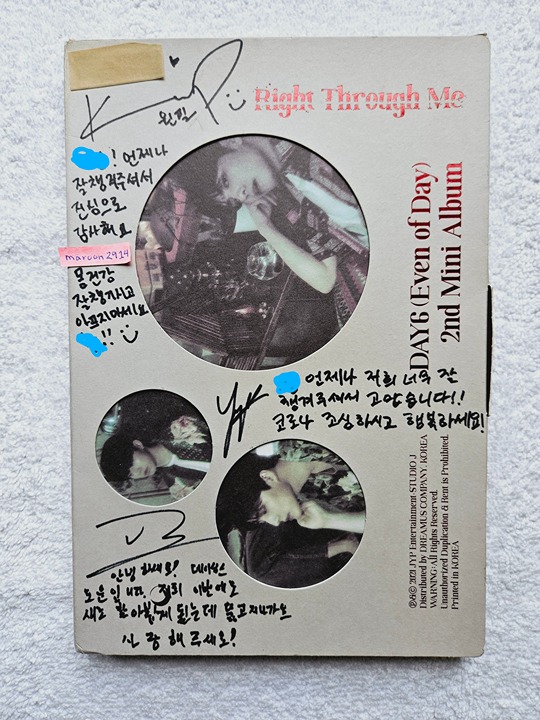 원필
Right Through Me
! 언제나
잘챙겨주셔서
진심으로
감사해요
maroon2914
몸건강
잘챙기시고
아프지마세요
!!
DAY6 (Even of Day)
2nd Mini Album
언제나 저희 너무 잘
챙겨주셔서 고맙습니다!!
코로나 조심하시고 행복하세요!
℗&© 2021 JYP Entertainment STUDIO J
Distributed by DREAMUS COMPANY. KOREA
WARNING: All Rights Reserved.
Unauthorized Duplication & Rent is Prohibited.
Printed in KOREA
안녕하세요! 데이식스
도운입니다. 저희 이번에도
새로 찾아뵙게 됬는데
사랑해주세요!